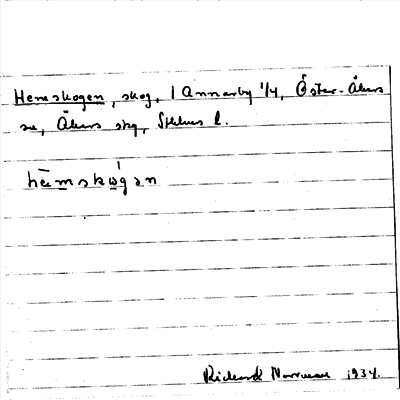 Hemskogen, skog, 1 Annarby 1/4, Öster-Åkers
sn, Åkers skg, Sthlms l.
hemskogen
Rickard 1934.